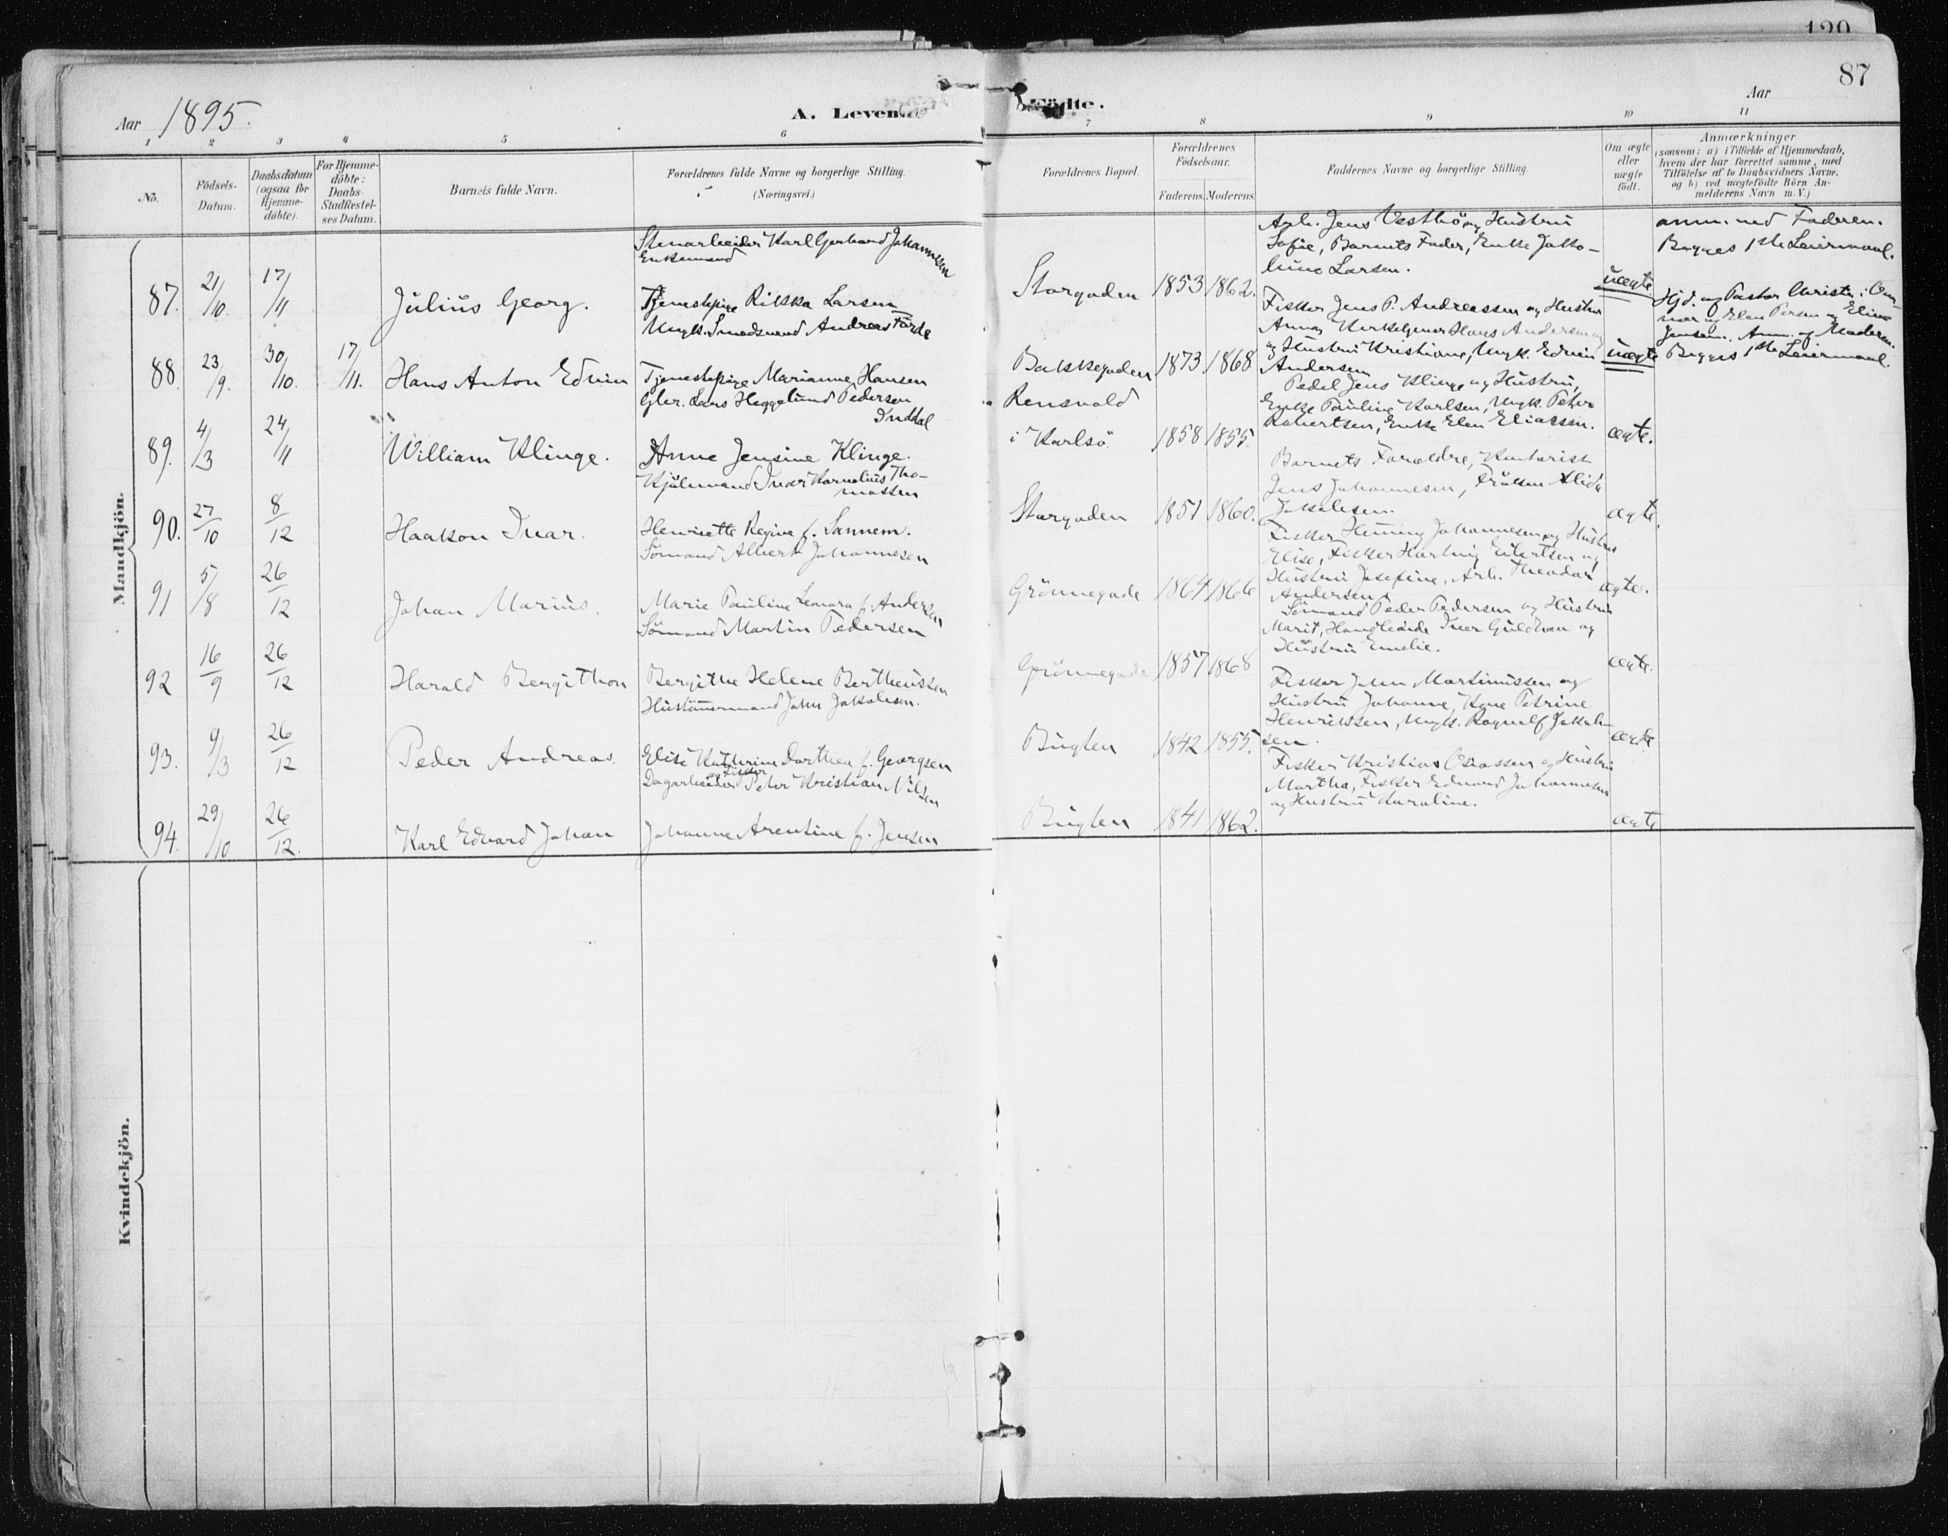 120
87
Aar 1895.
A. Levende
Födte.
Aar
1 2 3 4 5 6 7 8 9 10 11
No.
Födsels-
Datum.
Daabsdatum
(ogsaa for
Hjemme-
döbte).
For Hjemme-
döbte:
Daabs-
Stadfæstel-
ses Datum.
Barnets fulde Navn.
Forældrenes fulde Navne og borgerlige Stilling.
(Næringsvei.)
Forældrenes Bopæl.
Forældrenes
Födselsaar.
Faderens. Moderens.
Faddernes Navne og borgerlige Stilling.
Om ægte
eller
uægte
födt.
Anmærkninger
(saasom: a) i Tilfælde af Hjemmedaab,
hvem der har forrettet samme, med
Tilföielse af to Daabsvidners Navne,
og b) ved uægtefödte Börn An-
melderens Navn m. V.)
Mandkjön.
87. 21/10. 17/11 Julius Georg.
Stenarbeider Karl Gerhard Johannesen
Enkemand
Tjenestepige Rikka Larsen
Storgaden 1853 1862.
Arb. Jens Vesthö og Hustru
Sofie, Barnets Fader, Enke Jako-
bine Larsen.
uægte
anm. ved Faderen.
Begges 1ste Leiermaal.
88. 23/9. 30/10. 17/11. Hans Anton Edvin
Ungk. Smedsvend Andreas Förde
Tjenestepige Marianne Hansen
Bakkegaden 1873 1868
Fisker Jens P. Andreassen og Hustru
Anna, Kirketjener Hans Andersen
og Hustru Kristiane, Ungk. Edvin
Andersen
uægte
Hjd. af Pastor Christi
Jensen. Anm. af Moderen.
Begges 1ste Leiermaal.
89. 4/3 24/11 William Klinge.
Lars Heggelund Pedersen
Inddal
Anne Jensine Klinge.
Rensvold
i Karlsö 1858 1855.
Jens Klinge og Hustru,
Enke Pauline Karlsen, Ungk. Peter
Robertsen, Enke Elen Eliassen.
ægte.
90. 27/10 8/12 Haakon Ivar.
Kjölemand Ivar Kornelius Tho-
massen
Henriette Regine f. Sannem.
Storgaden 1851 1860.
Barnets Forældre, Kontorist
Jens Johannesen, Fröken Alida
Jakobsen.
ægte.
91 5/8 26/12 Johan Marius.
Sömand Albert Johannesen
Marie Pauline Leonora f. Andersen
Grönnegade 1864 1866
Fisker Henning Johannesen og Hustru
Elise, Fisker Hartvig Eilertsen og
Hustru Josefine, Arb. Theodor
Andersen.
ægte.
92 16/9 26/12 Harald Bergithon
Sömand Martin Pedersen
Bergithe Helene Bertheussen
Grönnegade 1857 1868
Sömand Peder Pedersen og Hustru
Marit, Handlende Iver Guldhav og
Hustru Emelie.
ægte.
93. 9/3 26/12 Peder Andreas.
Hustömmermand John Jakobsen.
Elise Kathrine Dorthea f. Georgsen
Buglen 1842 1855.
Fisker John Martinussen og
Hustru Johanne, Kone Petrine
Henriksen, Ungk. Ragnolf Jakob-
sen.
ægte
94. 29/10 26/12. Karl Edvard Johan
og Fisker
Dagarbeider Peter Kristian Nilsen
Johanne Arentine f. Jensen
Buglen 1841 1862.
Fisker Kristian Osiassen og Hustru
Martha, Fisker Edvard Johannesen
og Hustru Karoline.
ægte
Kvindekjön.